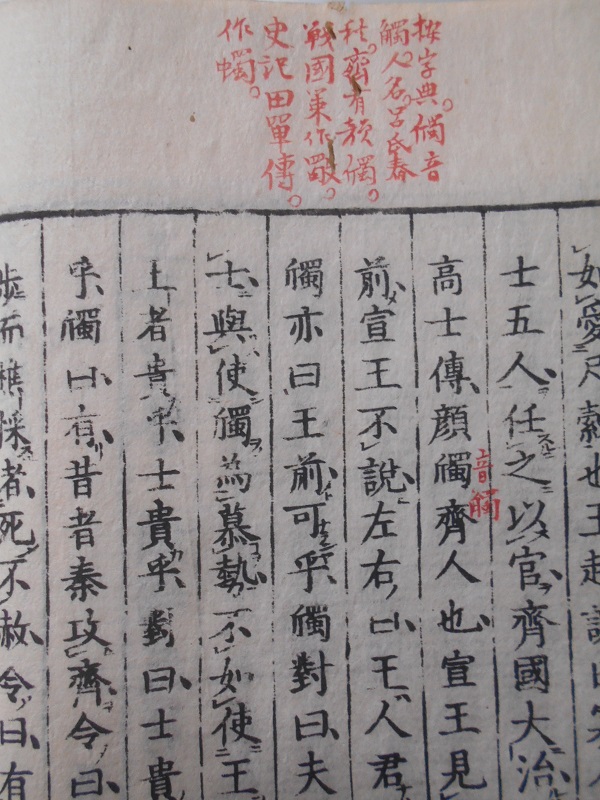 按字典。斶音
觸。人名。呂氏春
秋。齊有顔斶。
戰國策作歜。
史記田單傳。
作蠋。
如愛尺素也王起
士五人任之以官齊國大治
高士傳顔斶齊人也宣王見
音觸
前宣王不說左右曰王人君
斶亦曰王前可乎斶對曰夫
士與使斶為慕勢不如使王
王者貴乎士貴乎對曰士貴
乎斶曰有昔者秦攻齊令曰
而樵採者死不赦令曰有